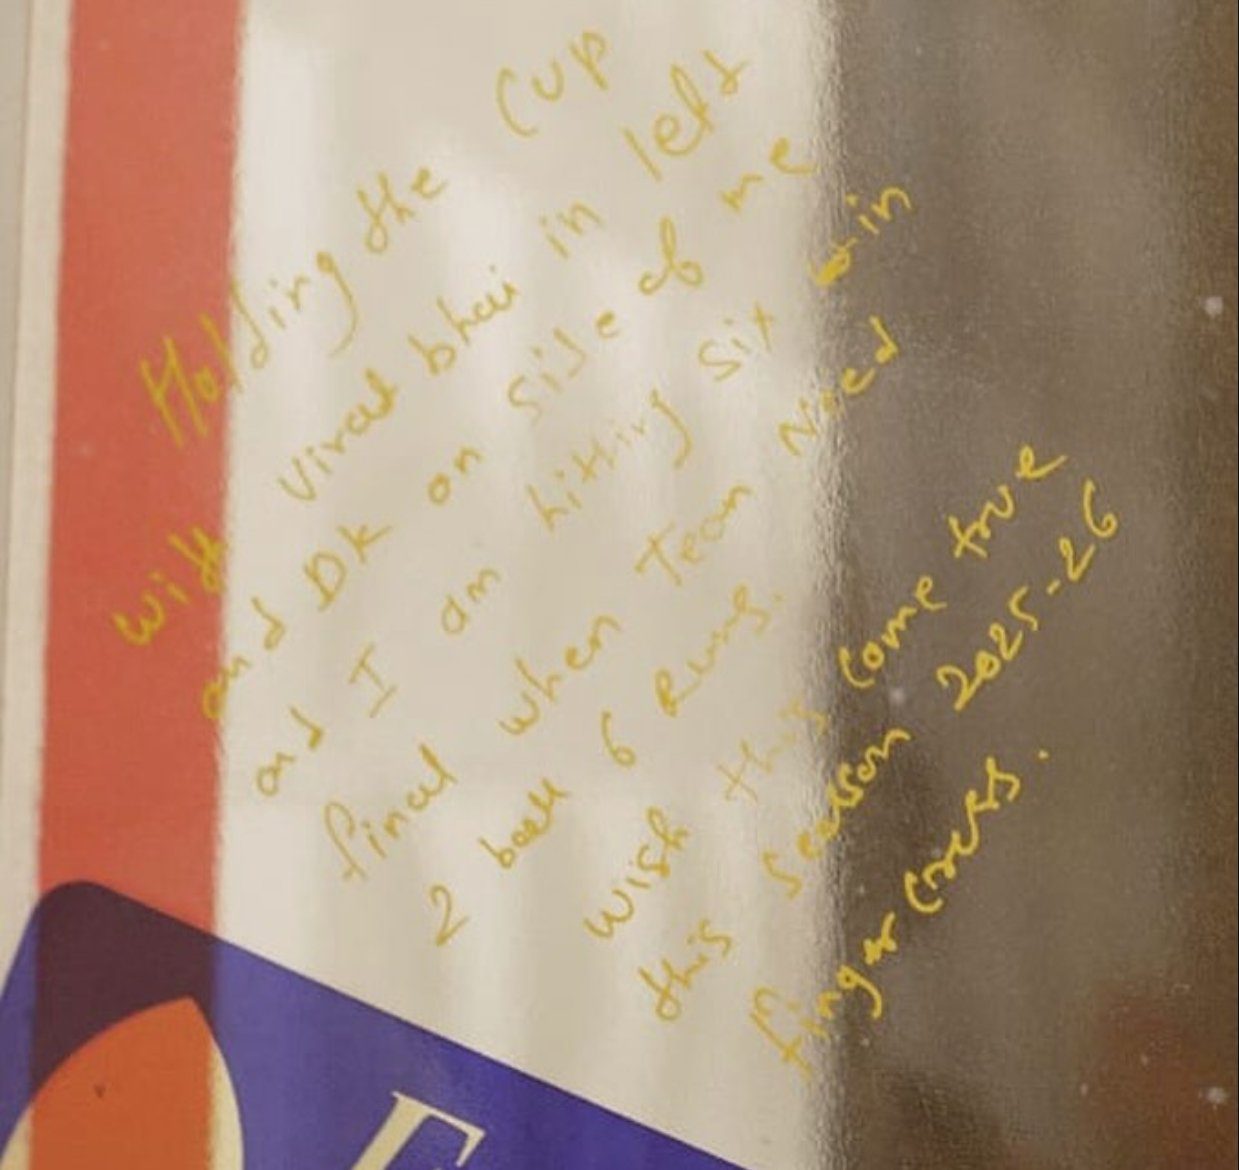 Holding the Cup
with Virat bhai in left
and DK on side of me
and I am hitting six in
final when Team Need
2 ball 6 Runs.
wish this come true
this season 2025-26
finger cross.